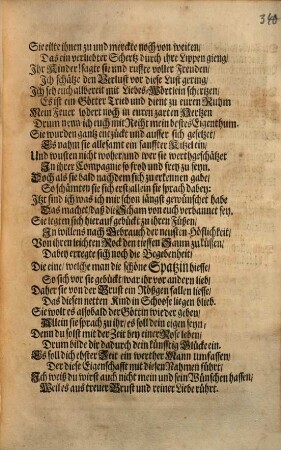 340
Sie eilte ihnen zu und merckte noch von weiten,
Das ein verliebter Schertz durch ihre Lippen gieng,
Ihr Kinder! sagte sie und ruffte voller Freuden,
Ich schätze den Verlust vor diese Lust gering,
Ich seh euch allbereit mit Liebes-Wörtlein schertzen,
Es ist ein Götter Trieb und dient zu euren Ruhm
Mein Feuer lodert noch in euren zarten Hertzen
Drum nenn ich euch mit Recht mein bestes Eigenthum.
Sie wurden gantz entzückt und ausser sich gesetzet,
Es nahm sie allesamt ein sanffter Kützel ein,
Und wusten nicht woher, und wer sie werthgeschätzet
In ihrer Compagnie so froh und frey zu seyn.
Doch als sie bald nachdem sich zu erkennen gabe,
So schämten sie sich erst, allein sie sprach dabey:
Itzt sind ich was ich mir schon längst gewünschet habe
Das machet, daß die Scham von euch verbannet sey.
Sie legten sich hierauf gebückt zu ihren Füssen,
In willens nach Gebrauch der neusten Höflichkeit,
Von ihren leichten Rock den tieffen Saum zu küssen,
Dabey erregte sich noch die Begebenheit,
Die eine, welche man die schöne Spätzin hiesse,
So sich vor sie gebückt, war ihr vor andern lieb,
Daher sie von der Brust ein Rösgen fallen liesse,
Das diesen netten Kind in Schoose liegen blieb.
Sie wolt es alsobald der Göttin wieder geben,
Allein sie sprach zu ihr, es soll dein eigen seyn,
Denn du solst mit der Zeit bey einer Rose leben,
Drum bilde dir dadurch dein künfftig Glücke ein.
Es soll dich ehster Zeit ein werther Mann umfassen,
Der diese Eigenschafft mit diesen Nahmen führt,
Ich weiß du wirst auch nicht mein und sein Wünschen hassen,
Weil es aus treuer Brust und reiner Liebe rührt.